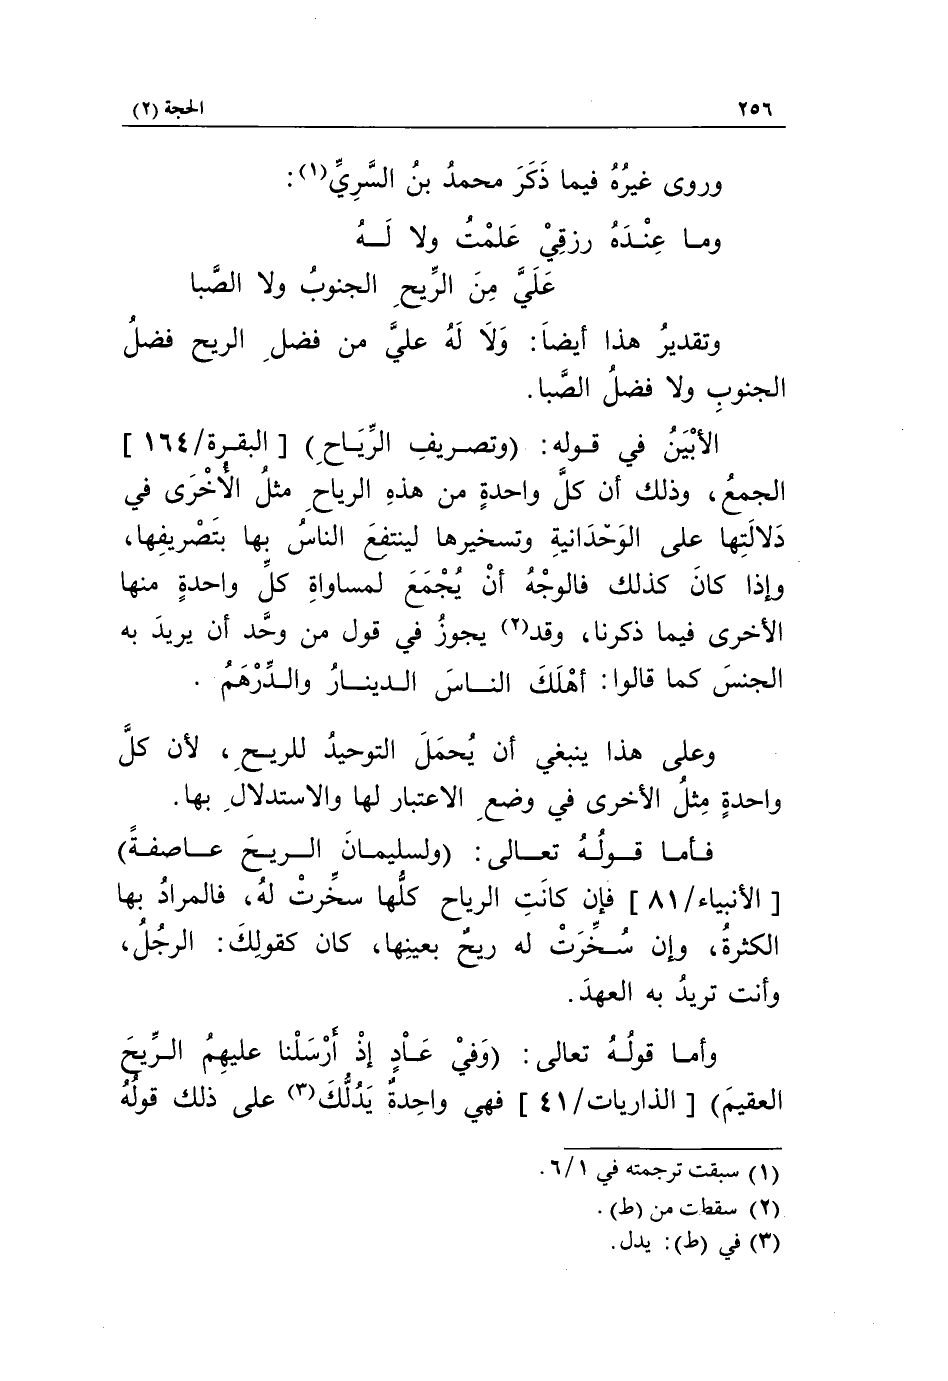 ٢٥٦ الحجة (٢)
وروى غيرُهُ فيما ذَكَرَ محمدُ بنُ السَّرِيِّ(١):
وما عِنْدَهُ رزقِيْ عَلمْتُ ولا لَهُ
عَلَيَّ مِنَ الرِّيحِ الجنوبُ ولا الصَّبا
وتقديرُ هذا أيضاَ: وَلَا لَهُ عليَّ من فضلِ الريح فضلُ
الجنوبِ ولا فضلُ الصَّبا.
الأبْيَنُ في قوله: (وتصريفِ الرِّيَاحِ) [البقرة/١٦٤]
الجمعُ، وذلك أن كلَّ واحدةٍ من هذهِ الرياحِ مثلُ الأُخْرَى في
دَلالَتِها على الوَحْدَانيةِ وتسخيرها لينتفعَ الناسُ بها بتَصْريفِها،
وإذا كانَ كذلك فالوجْهُ أنْ يُجْمَعَ لمساواةِ كلِّ واحدةٍ منها
الأخرى فيما ذكرنا، وقد(٢) يجوزُ في قول من وحَّد أن يريدَ به
الجنسَ كما قالوا: أهْلَكَ الناسَ الدينارُ والدِّرْهَمُ .
وعلى هذا ينبغي أن يُحمَلَ التوحيدُ للريحِ، لأن كلَّ
واحدةٍ مِثلُ الأخرى في وضعِ الاعتبار لها والاستدلالِ بها.
فأما قولُهُ تعالى: (ولسليمانَ الريحَ عاصفةً)
[الأنبياء/٨١] فإن كانَتِ الرياح كلُّها سخِّرتْ لهُ، فالمرادُ بها
الكثرةُ، وإن سُخِّرَتْ له ريحٌ بعينِها، كان كقولِكَ: الرجُلُ،
وأنت تريدُ به العهدَ.
وأما قولُهُ تعالى: (وَفيْ عَادٍ إذْ أَرْسَلْنا عليهِمُ الرِّيحَ
العقيمَ) [الذاريات/٤١] فهي واحِدةٌ يَدُلُّكَ(٣) على ذلك قولُهُ
(١) سبقت ترجمته في ٦/١.
(٢) سقطت من (ط).
(٣) في (ط): يدل.